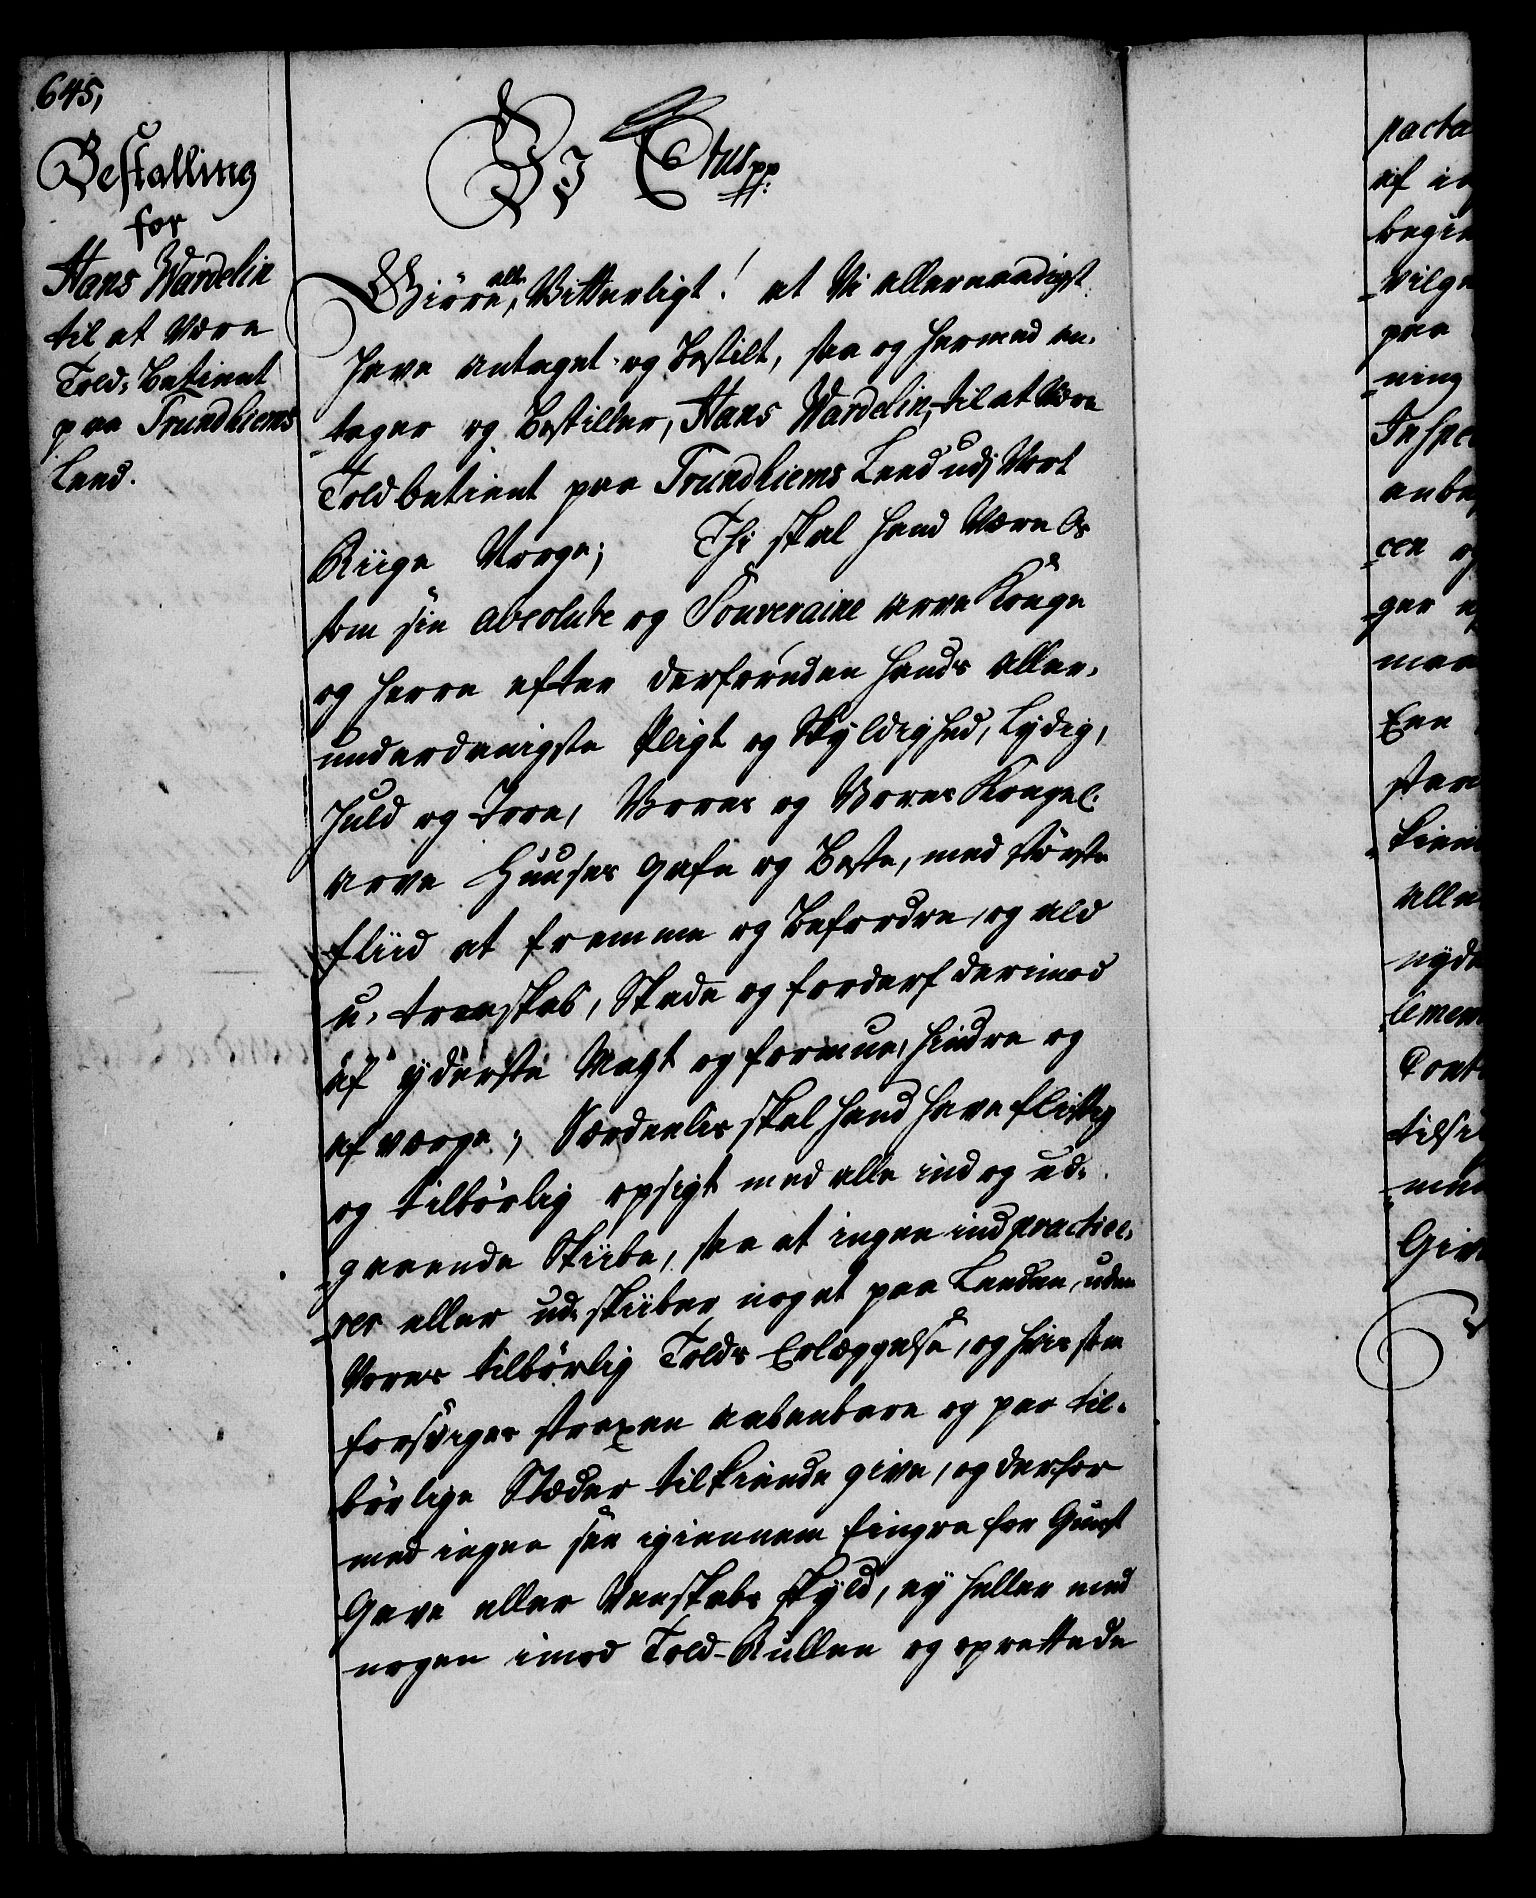 645,
Bestalling
for
Hans Wardelin
til at være
Told-Betient
paa Trundhiems
Land.
VJ C6tus pp:
Giöre alle Vitterligt! at Vi allernaadigst
have antaget og bestilt, saa og hermed an-
tager og bestiller, Hans Wardelin, til at være
Toldbetient paa Trundhiems Land udj Vort
Riige Norge; Thi skal hand være Os
som sin absolute og Souveraine arve Konge
og Herre efter derforuden hands aller-
underdanigste Pligt og Skyldighed, lydig,
huld og troe, Vores og Vores Kongel:
arve Huuses gafn og beste, med störste
fliid at fremme og befordre, og ald
u-troeskab, Skade og forderf derimod
af yderste Magt og formue, hindre og
afværge; Særdeeles skal hand have flittig
og tilbörlig opsigt med alle ind og ud-
gaaende Skiibe, saa at ingen indpractice-
res eller udskiiber noget paa Landen, uden
Vores tilbörlig Tolds Erlæggelse, og hvis som
forsviges strapen aabenbare og paa til-
börlige Stæder tilkiende give, og derfor
med ingen see igiennem fingre for Gunst
Gave eller Venskabs skyld, ey heller med
nogen imod Told-Rullen og oprettede
pacta
af in
begie
vilge
paa
ning
Inspec
anbe
cen og
ger e
maa
Een
stan
kiend
alle
nyde
lemen
Cont
tilsi
mue
Give